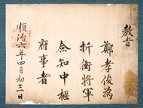 教旨
鄭孝俊為
折衝將軍
僉知中樞
府事者
順治六年四月初三日